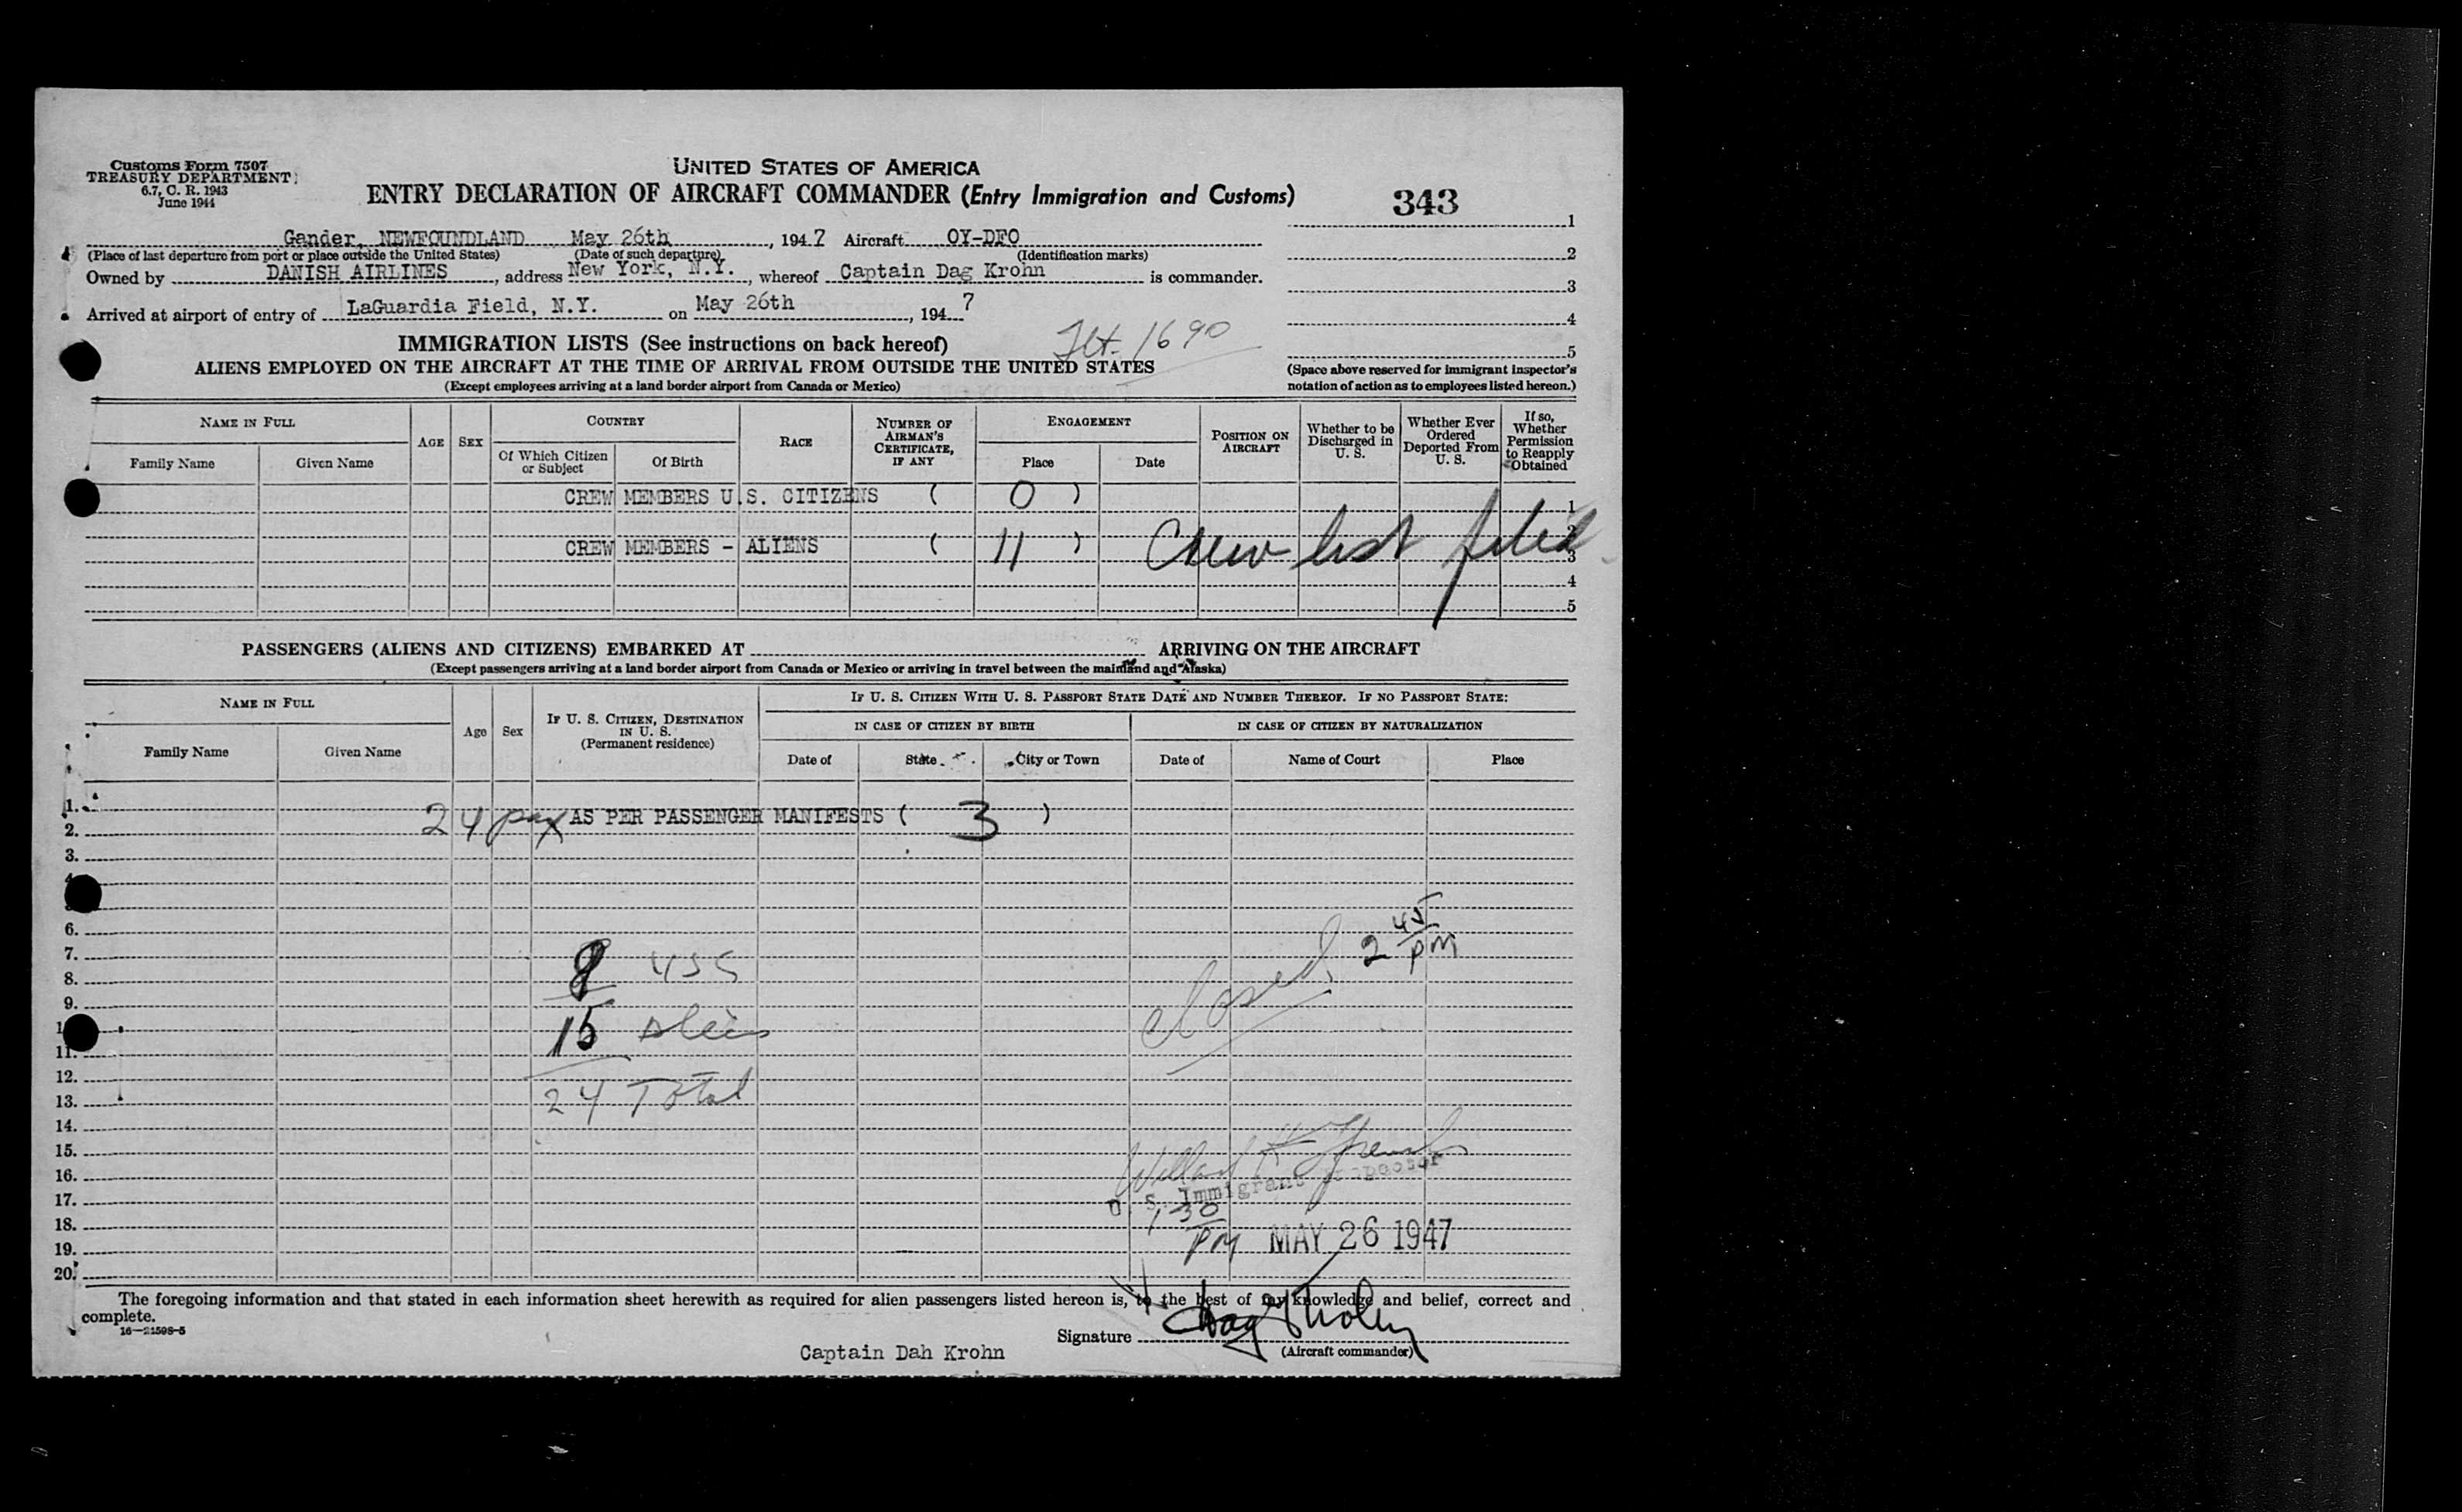 Customs Form 7507
TREASURY DEPARTMENT
6.7, C. R. 1943
June 1944
UNITED STATES OF AMERICA
ENTRY DECLARATION OF AIRCRAFT COMMANDER (Entry Immigration and Customs)
343
1
Gander, NEWFOUNDLAND May 26th, 1947 Aircraft OY-DFO
(Place of last departure from port or place outside the United States) (Date of such departure) (Identification marks)
2
Owned by DANISH AIRLINES, address New York, N.Y., whereof Captain Dag Krohn is commander.
3
Arrived at airport of entry of LaGuardia Field, N.Y. on May 26th, 1947
4
Flt. 1690
5
IMMIGRATION LISTS (See instructions on back hereof)
ALIENS EMPLOYED ON THE AIRCRAFT AT THE TIME OF ARRIVAL FROM OUTSIDE THE UNITED STATES
(Except employees arriving at a land border airport from Canada or Mexico)
(Space above reserved for immigrant inspector's
notation of action as to employees listed hereon.)
NAME IN FULL
Family Name
Given Name
AGE
SEX
COUNTRY
Of Which Citizen
or Subject
Of Birth
RACE
NUMBER OF
AIRMAN'S
CERTIFICATE,
IF ANY
ENGAGEMENT
Place
Date
POSITION ON
AIRCRAFT
Whether to be
Discharged in
U. S.
Whether Ever
Ordered
Deported From
U. S.
If so,
Whether
Permission
to Reapply
Obtained
CREW MEMBERS U.S. CITIZENS ( 0 )
1
2
CREW MEMBERS - ALIENS ( 11 ) Crew list filed
3
4
5
PASSENGERS (ALIENS AND CITIZENS) EMBARKED AT ARRIVING ON THE AIRCRAFT
(Except passengers arriving at a land border airport from Canada or Mexico or arriving in travel between the mainland and Alaska)
NAME IN FULL
Family Name
Given Name
Age
Sex
IF U. S. CITIZEN, DESTINATION
IN U. S.
(Permanent residence)
IF U. S. CITIZEN WITH U. S. PASSPORT STATE DATE AND NUMBER THEREOF. IF NO PASSPORT STATE:
IN CASE OF CITIZEN BY BIRTH
IN CASE OF CITIZEN BY NATURALIZATION
Date of
State
City or Town
Date of
Name of Court
Place
1.
24 pax AS PER PASSENGER MANIFESTS ( 3 )
2.
3.
4.
6.
2 45 PM
7.
8.
9 USC
closed
9.
15 Alien
11.
12.
13.
24 Total
14.
15.
Willard H French
16.
U. S. Immigrant Inspector
17.
18.
1 30 PM MAY 26 1947
19.
20.
The foregoing information and that stated in each information sheet herewith as required for alien passengers listed hereon is, to the best of my knowledge and belief, correct and
complete.
16—21598-5
Signature Dag Krohn
(Aircraft commander)
Captain Dah Krohn